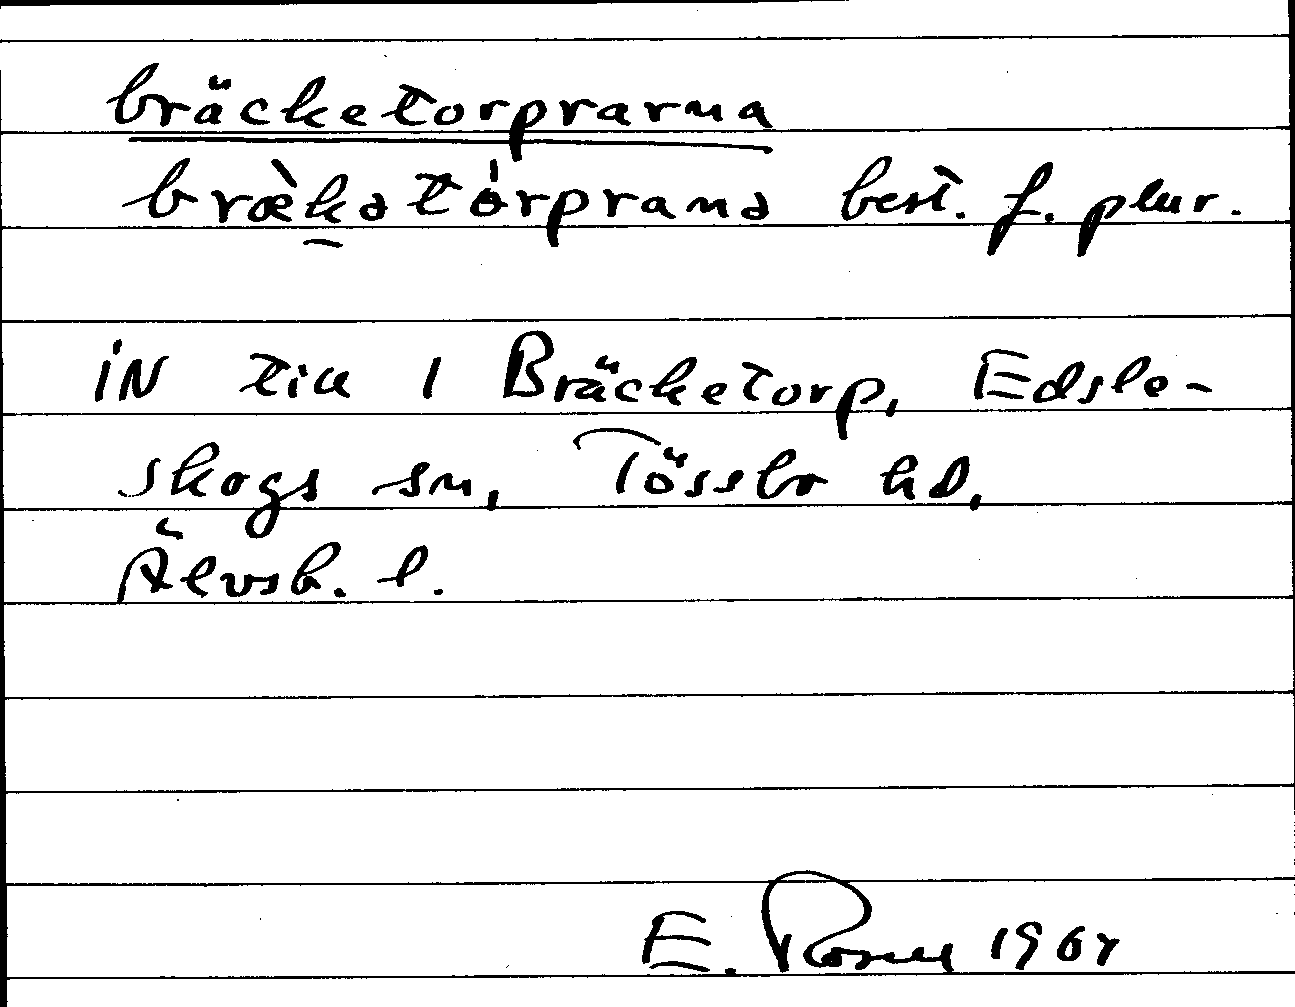 bräcketorprarna
bræ̀kətórpranə best. f. plur.
iN till 1 Bräcketorp, Edsle-
skogs sn, Tössbo hd,
Älvsb. l.
E. Rosell